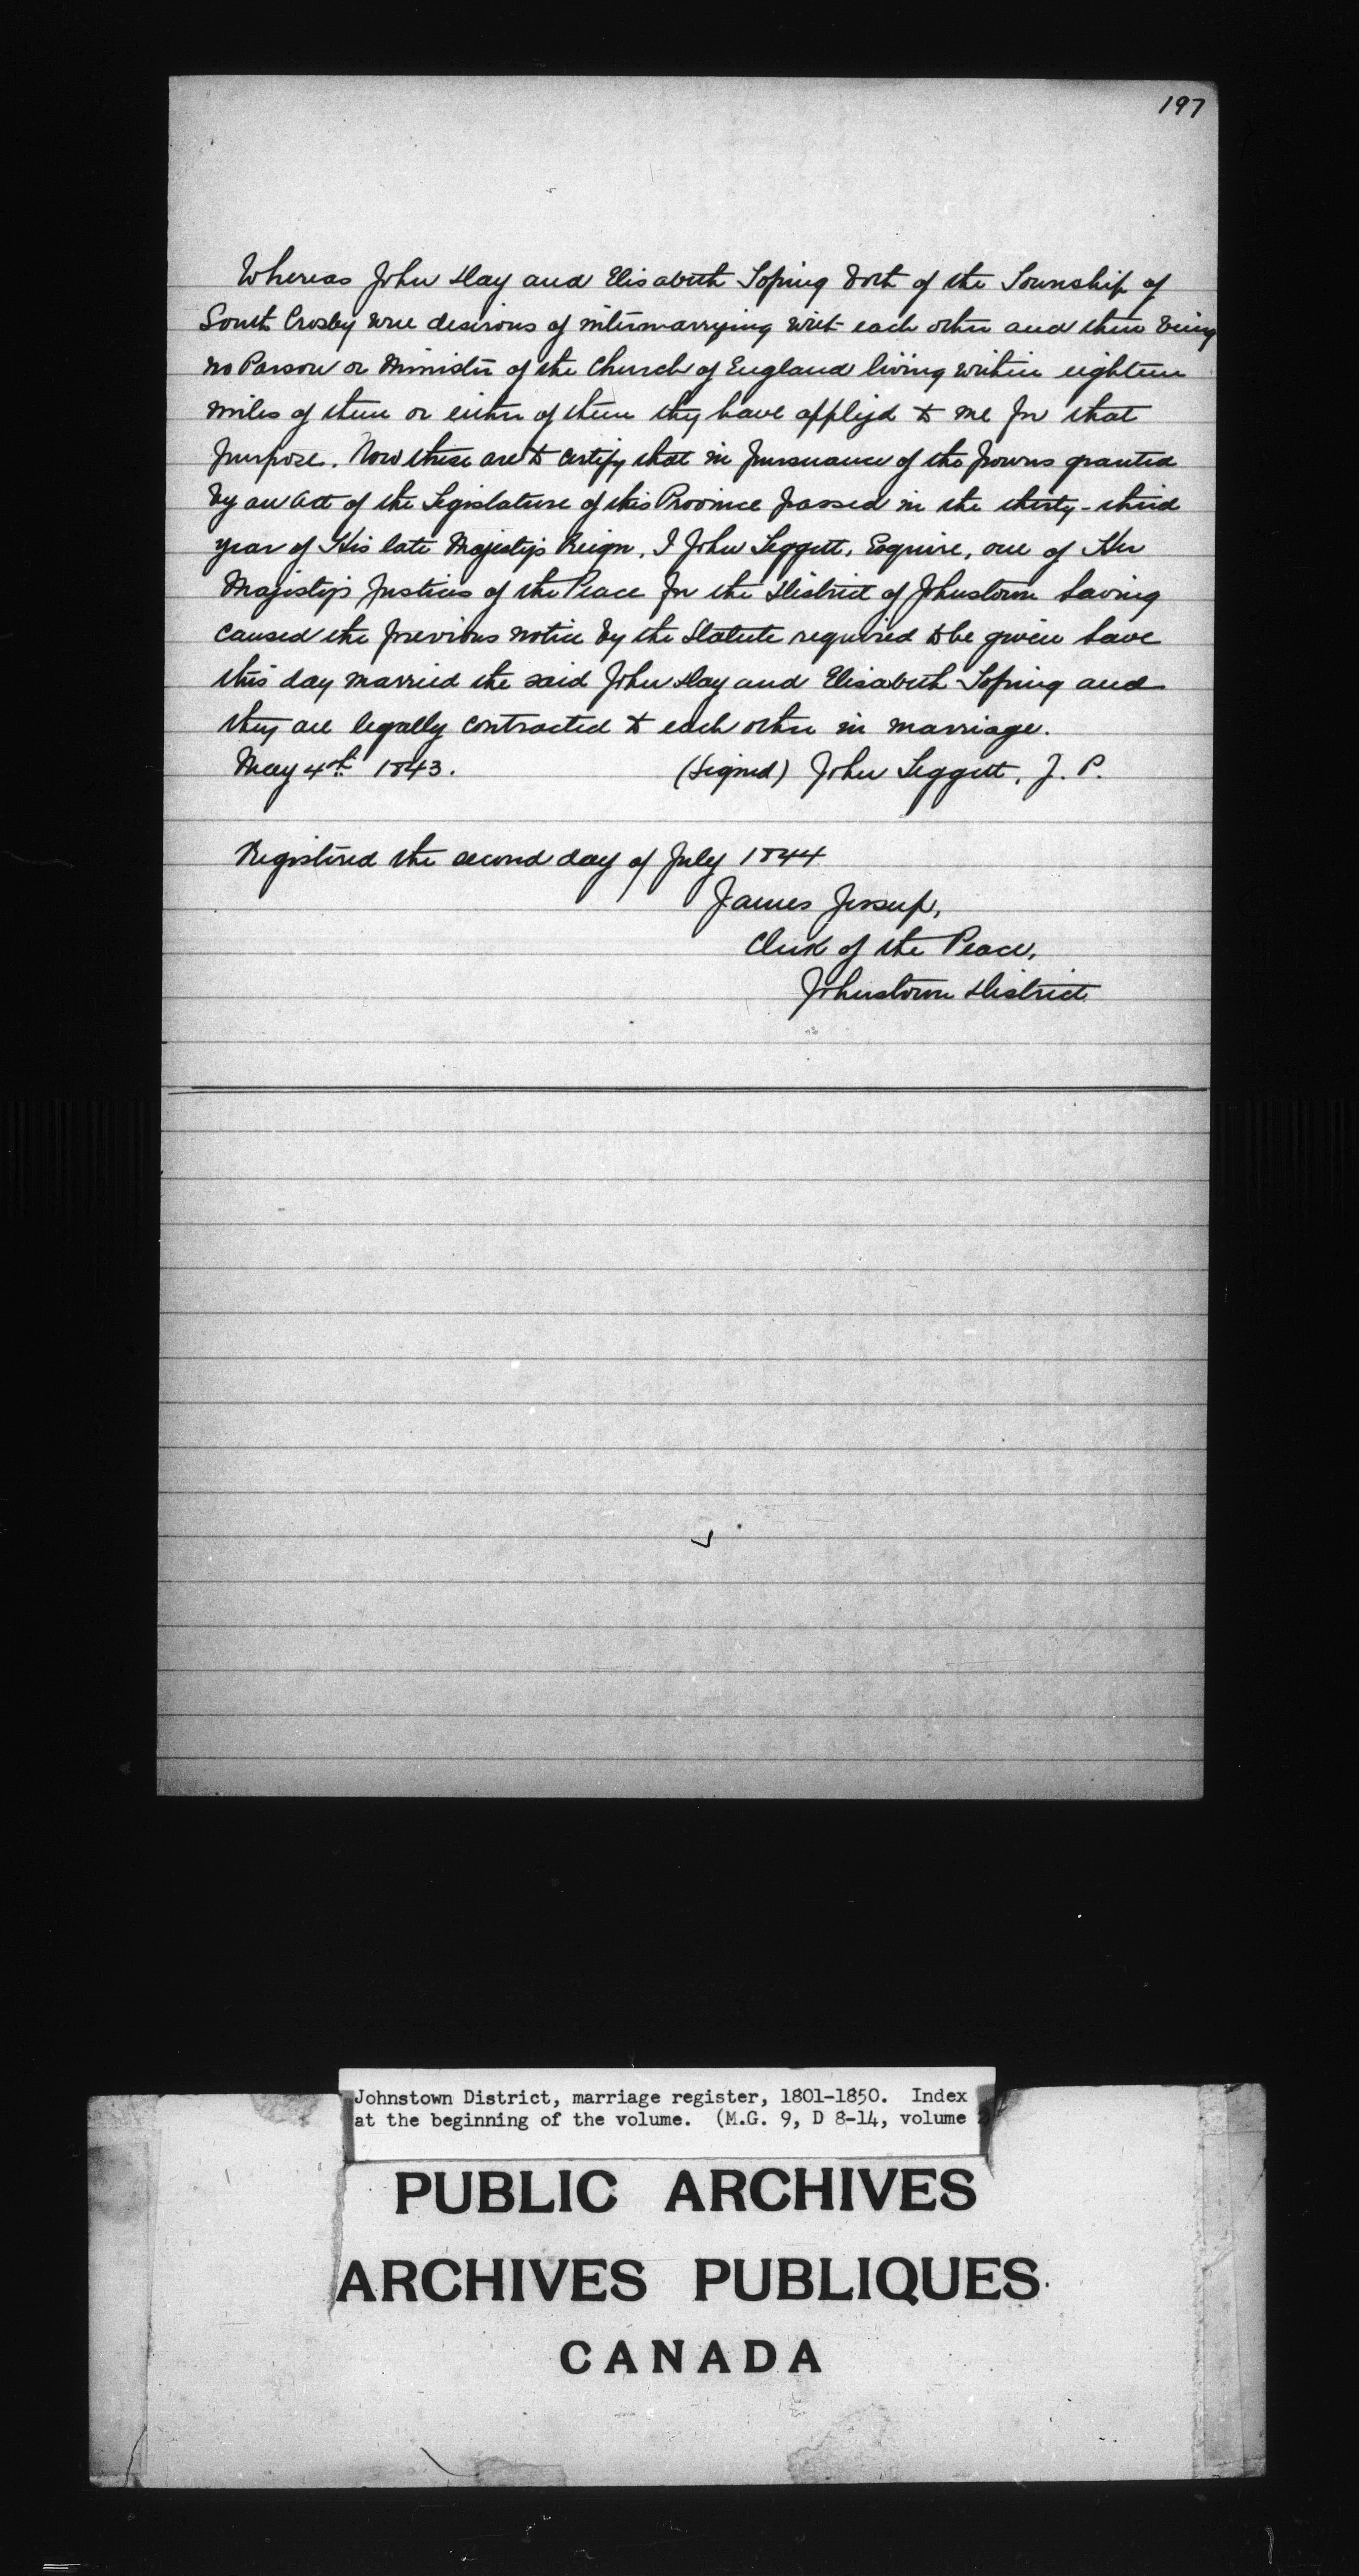 197
Whereas John Day and Elisabeth Toping both of the Township of
South Crosby were desirous of intermarrying with each other and there being
no Parson or Minister of the Church of England living within eighteen
miles of them or either of them they have applyd to me for that
purpose. Now these are to certify that in pursuance of the powers granted
by an Act of the Legislature of this Province passed in the thirty-third
year of His late Majesty's Reign, I John Leggett, Esquire, one of Her
Majesty's Justices of the Peace for the District of Johnstown having
caused the previous notice by the Statute required to be given have
this day married the said John Day and Elisabeth Toping and
they are legally contracted to each other in marriage.
May 4th 1843. (Signed) John Leggett, J. P.
Registered the second day of July 1844
James Jessup,
Clerk of the Peace,
Johnstown District
Johnstown District, marriage register, 1801-1850. Index
at the beginning of the volume. (M.G. 9, D 8-14, volume
PUBLIC ARCHIVES
ARCHIVES PUBLIQUES
CANADA